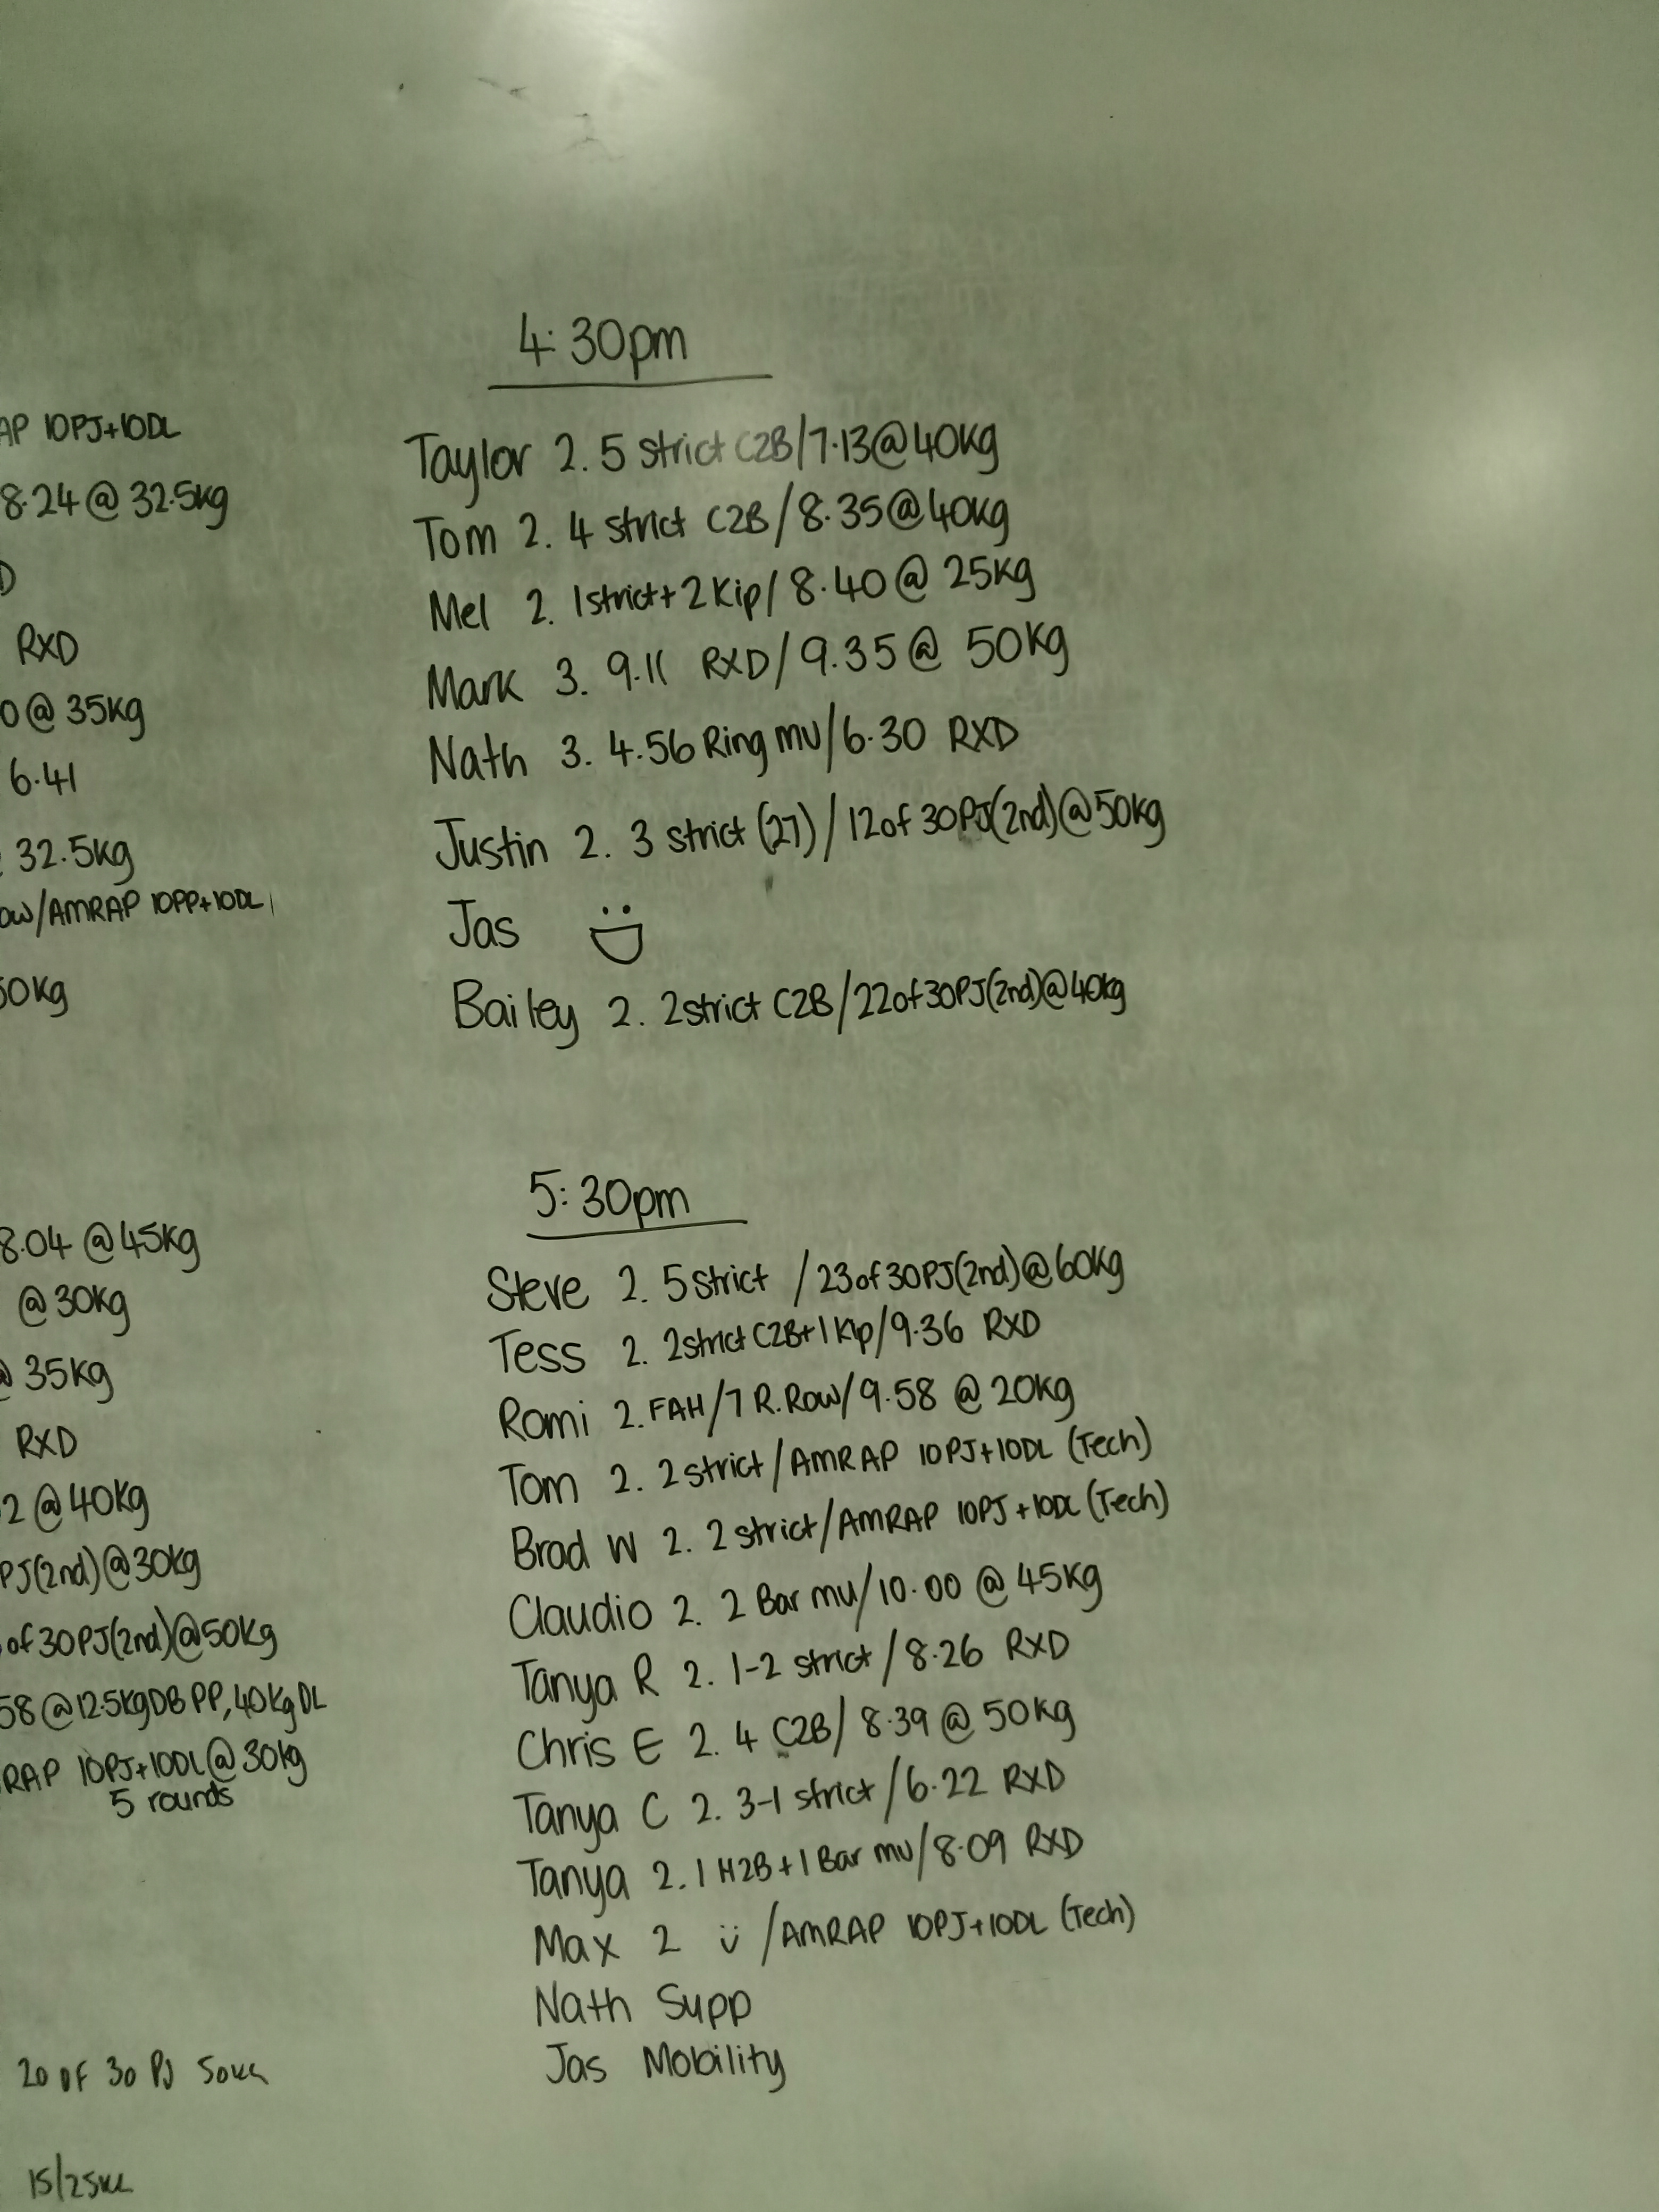 AP 10PJ+10DL
8.24 @ 32.5kg
D
RXD
0 @ 35kg
6.41
32.5kg
ow/AMRAP 10PP+10DL
50kg
8.04 @ 45kg
@ 30kg
@ 35kg
RXD
2 @ 40kg
PJ(2nd)@30kg
of 30PJ(2nd)@50kg
58 @ 12.5kgDB PP, 40kg DL
RAP 10PJ+10DL @ 30kg
5 rounds
20 OF 30 PJ 50KG
4:30pm
Taylor 2. 5 strict C2B/7.13@40kg
Tom 2. 4 strict C2B/8.35@40kg
Mel 2. 1strict+2Kip/8.40 @ 25kg
Mark 3. 9.11 RXD/9.35 @ 50kg
Nath 3. 4.56 Ring mu/6.30 RXD
Justin 2. 3 strict (27)/12of 30PJ(2nd)@50kg
Jas
Bailey 2. 2strict C2B/22of30PJ(2nd)@40kg
5:30pm
Steve 2. 5strict /23of30PJ(2nd)@60kg
Tess 2. 2strict C2B+1 Kip/9.36 RXD
Romi 2. FAH/7 R.Row/9.58 @ 20kg
Tom 2. 2strict/AMRAP 10PJ+10DL (Tech)
Brad W 2. 2 strict/AMRAP 10PJ+10DL (Tech)
Claudio 2. 2 Bar mu/10.00 @ 45kg
Tanya R 2. 1-2 strict/8.26 RXD
Chris E 2. 4 C2B/8.39 @ 50kg
Tanya C 2. 3-1 strict/6.22 RXD
Tanya 2. 1 H2B+1 Bar mu/8.09 RXD
Max 2 /AMRAP 10PJ+10DL (Tech)
Nath Supp
Jas Mobility